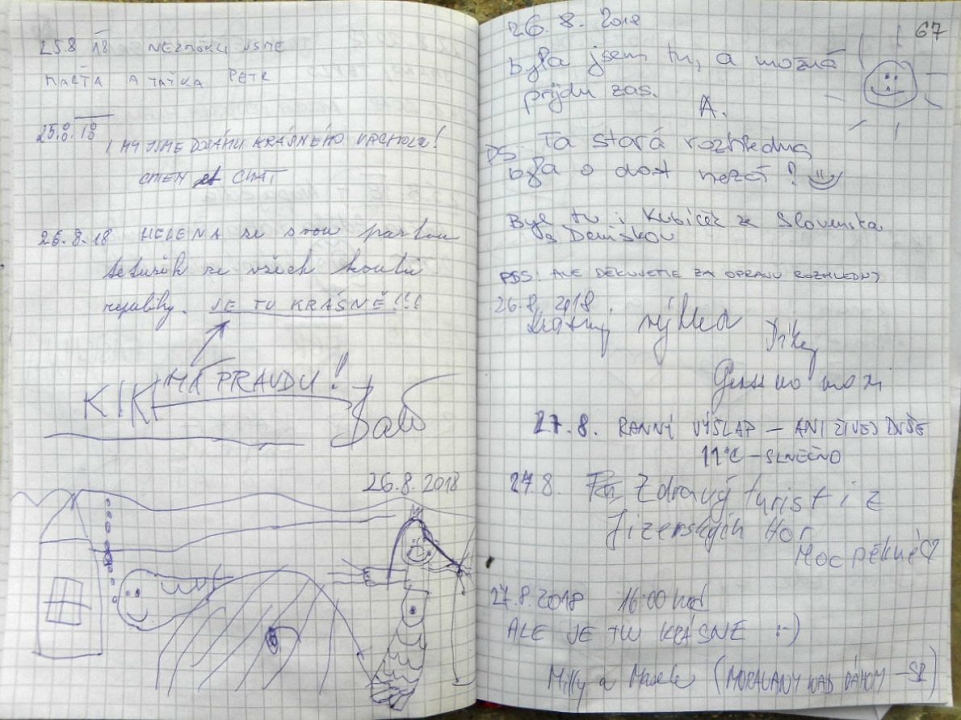 25.8 18 NEZMOKLI JSME
MARŤA A TAŤKA PETR
25.8.18
I MY JSME DOSÁHLI KRÁSNÉHO VRCHOLU!
CHCEM CHAT
26.8.18 HELENA se svou partou
ze všech koutů
republiky. JE TU KRÁSNĚ!!!
KIKI MÁ PRAVDU!
26.8.2018
67
26.8.2018
byla jsem tu, a možná
přijdu zas.
A.
PS: Ta stará rozhledna
byla o dost hezčí!
Byl tu i Kubíček ze Slovenska
s Deniskou
PSS: ALE DĚKUJEME ZA OPRAVU ROZHLEDNY
26.8.2018
Krásný výhled
Díky
27.8. RANNÝ VÝŠLAP – ANI ŽIVEJ DUŠE
11°C – SLNEČNO
27.8 Zdravý turisti z
Jizerských Hor
Moc pěkné
27.8.2018 16:00 hod
ALE JE TU KRÁSNE :-)
Milly a Marek (MORAVANY NAD VÁHOM – SR)